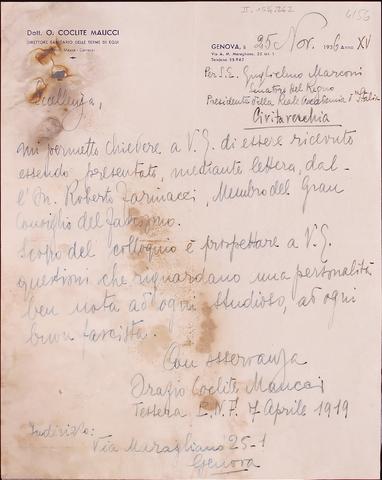 II. 156,262
6156
Dott. O. COCLITE MALUCCI
DIRETTORE SANITARIO DELLE TERME DI EQUI
GENOVA, li 25 Nov. 1936 Anno XV
Via A. M. Maragliano, 25 int. 1
Per S.E. Guglielmo Marconi
Senatore del Regno
Presidente della Reale Accademia d'Italia
Civitavecchia
Eccellenza,
mi permetto chiedere a V.E. di essere ricevuto
essendo presentato, mediante lettera, dal-
l'On. Roberto Farinacci, Membro del Gran
Consiglio del Fascismo.
Scopo del colloquio è prospettare a V.E.
questioni che riguardano una personalità
ben nota ad ogni studioso, ad ogni
buon fascista.
Con osservanza
Orazio Coclite Malucci
Tessera P.N.F. 7 Aprile 1919
Indirizzo:
Via Maragliano 25-1
Genova